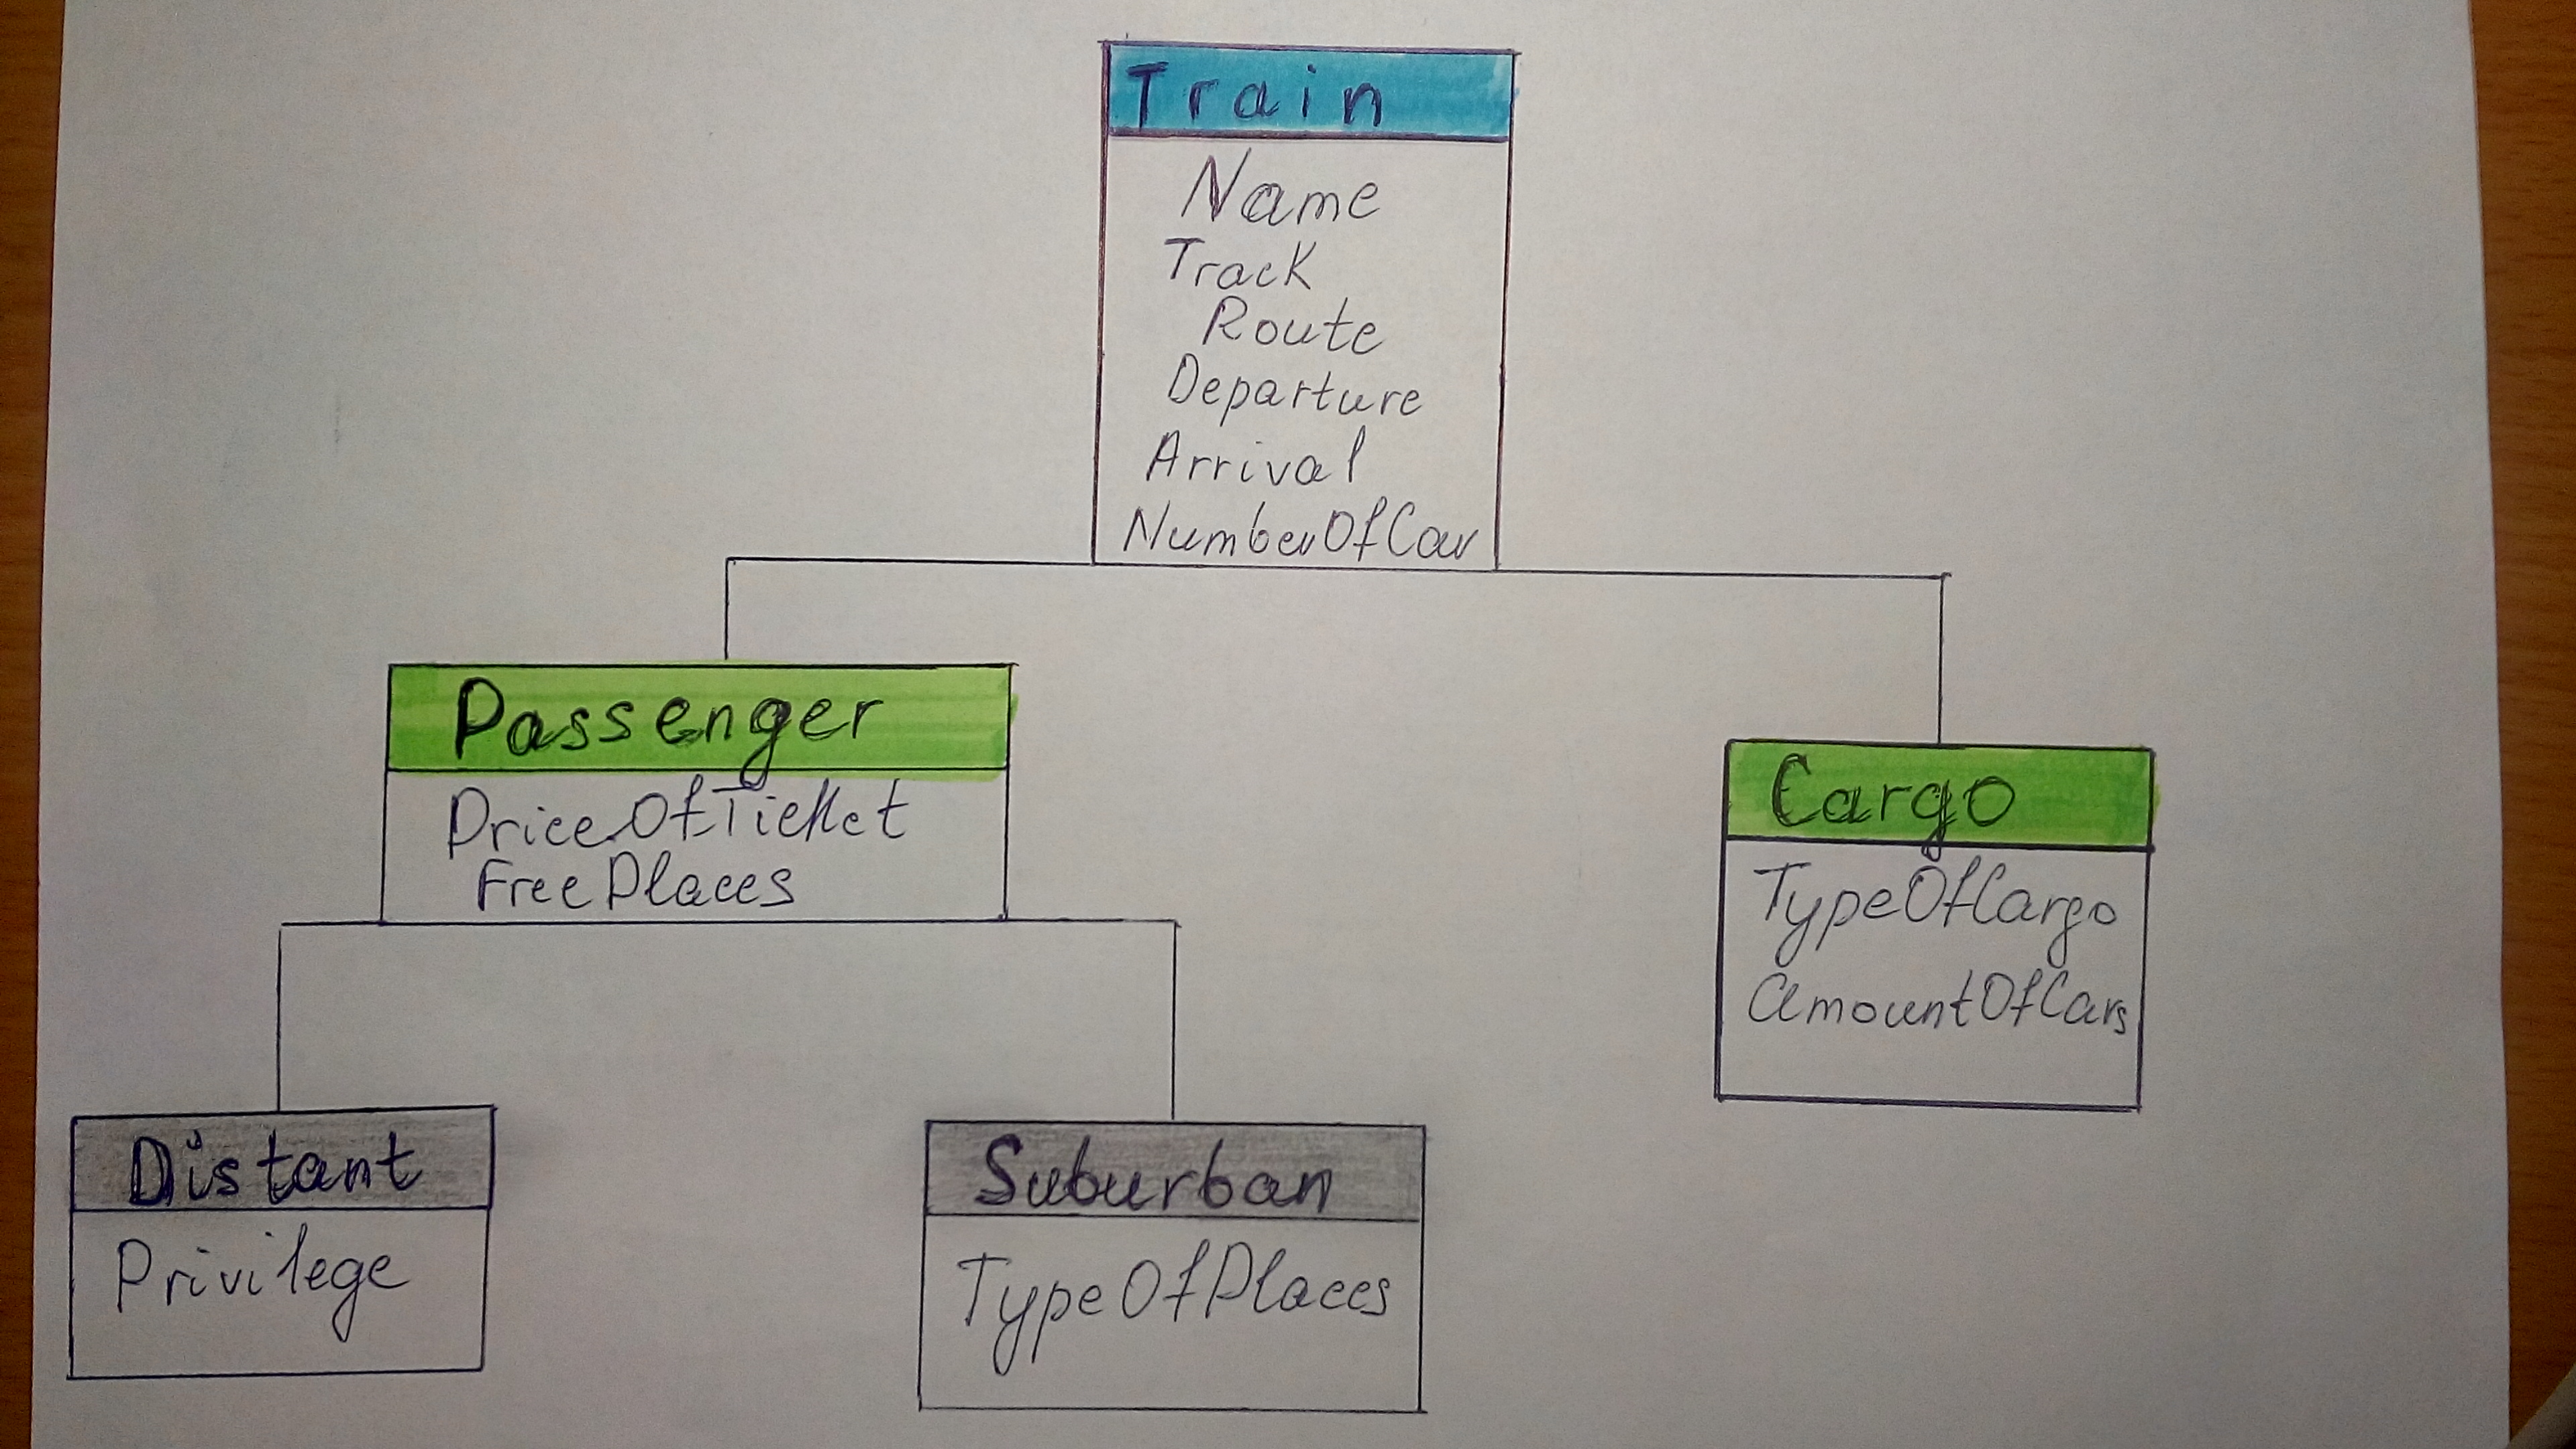 Train
Name
Track
Route
Departure
Arrival
NumberOfCar
Passenger
PriceOfTicket
FreePlaces
Cargo
TypeOfCargo
AmountOfCars
Distant
Privilege
Suburban
TypeOfPlaces